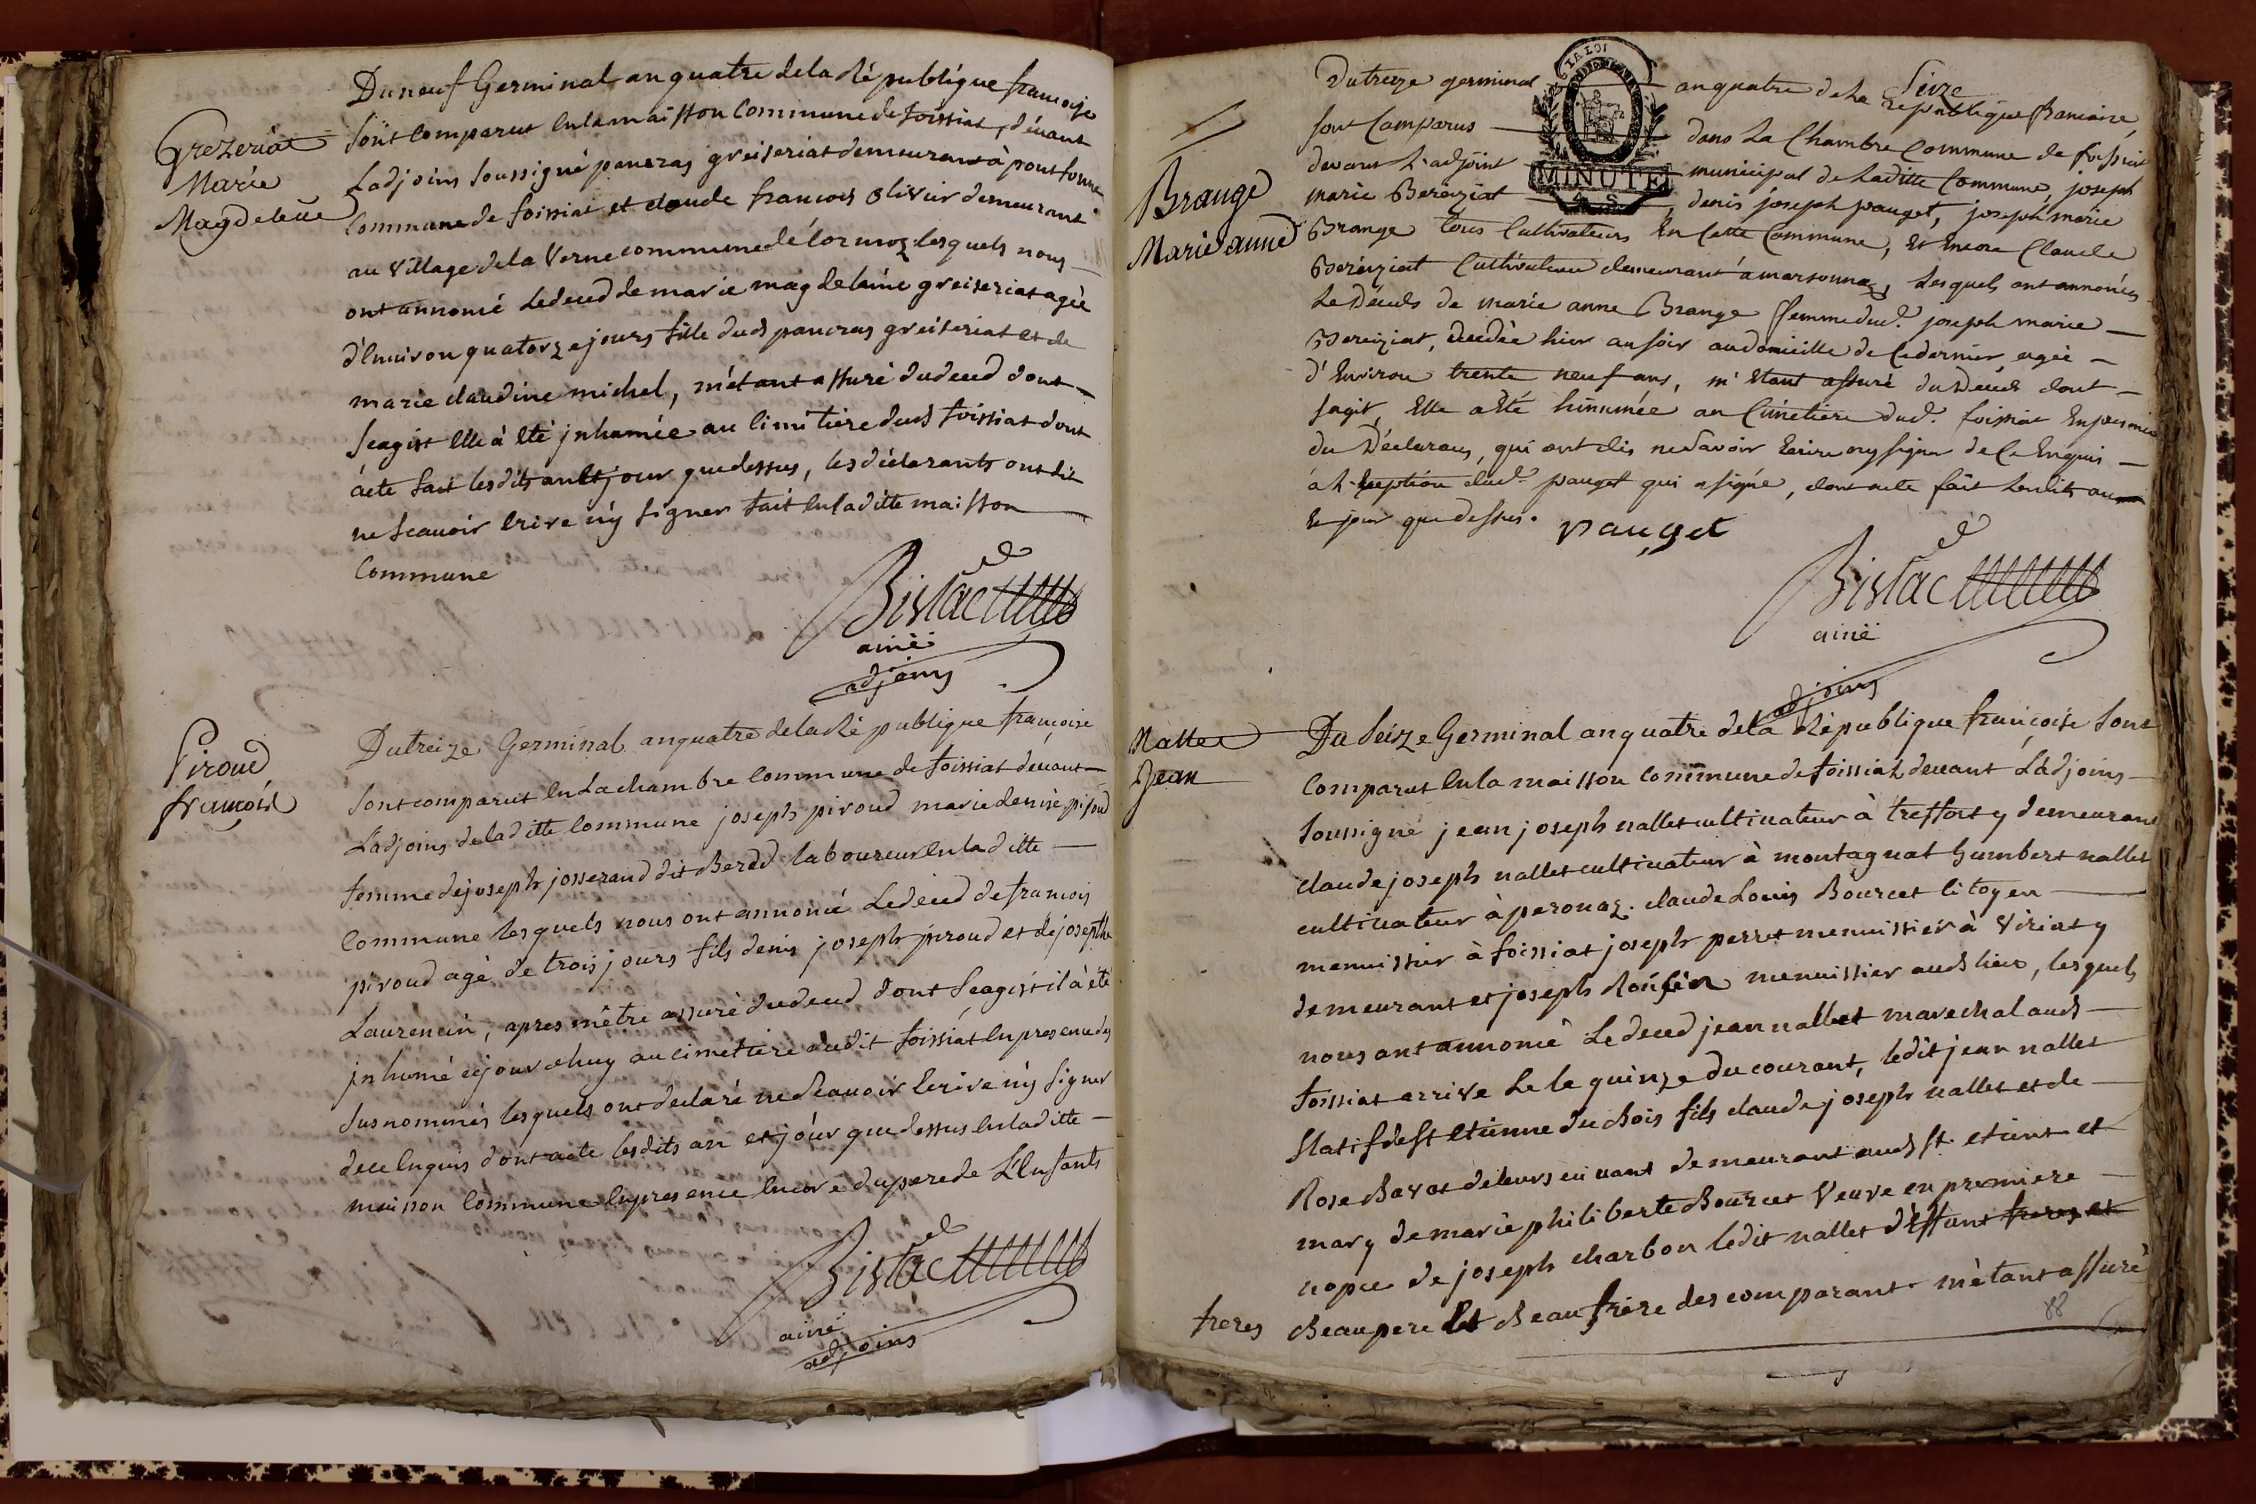 Grezeriat
Marie
Magdeleine
Du neuf Germinal an quatre de la République francoise
sont comparut en la maisson commune de foissiat, dévant
Ladjoins soussigné pancras greiseriat demeurant à pont
commune de foissiat et claude francois olivier demeurant
au village de la Verne commune de lesquels nous
ont annoncé le deced de marie magdelaine greiseriat agée
d'environ quatorze jours fille dud pancras greiseriat et de
marie claudine michel, m'étant assuré du deced dont
seagist elle à été jnhumée au cimitiere dud foissiat dont
acte fait lesdits an et jour que dessus, les déclarants ont dit
ne scauoir ecrire n'y signer fait en la ditte maisson
commune
ainé
adjoins
Piroud
francois
Du treize Germinal an quatre de la République francoise
sont comparut en La chambre commune de foissiat dévant
Ladjoins de la ditte commune joseph piroud marie denise piroud
femme de joseph josserand dit laboureur en la ditte
commune lesquels nous ont annoncé Le deced de francois
piroud agé de trois jours fils denis joseph piroud et de josephte
Laurencin, apres mêtre assuré du deced dont seagist il à été
jnhumé cejourdhuy au cimettiere dudit foissiat en presence des
susnommés lesquels ont declaré ne scauoir Ecrire n'y signer
de ce enquis dont acte lesdits an et jour que dessus en la ditte
maisson commune en presence encore du pere de L'Enfants
ainé
adjoins
Brange
Marie anne
Du treize germinal an quatre de la République francaise
seize
sont Comparus dans La Chambre Commune de foissiat
devant L'adjoint municipal de Laditte Commune, joseph
MINUTE
marie Bereiziat denis joseph pauget, joseph marie
Brange tous Cultivateurs En Cette Commune, Et encore Claude
Bereiziat Cultivateur demeurant à marsonnas, Lesquels ont annoncés
Le Décès de marie anne Brange femme dud. joseph marie
Bereiziat, decedée hier au soir au domicille de Ce dernier agée
d'Environ trente neuf ans, m'Etant assuré du Décès dont
sagit, Elle a Eté hinumée au Cimetiere dud. foissiat En presence
du Déclarans, qui ont dis ne savoir Ecrire ny signer de Ce Enquis
à L'exeption dud. pauget qui a signé, dont acte fait Lesdits an
Et jour que dessus. pauget
ainé
adjoins
Nallet
Jean
Du seize Germinal an quatre de la République francoise sont
comparut en la maisson commune de foissiat devant Ladjoins
soussigné jean joseph nallet cultivateur à treffort y demeurant
claude joseph nallet cultivateur à montagnat humbert nallet
cultivateur à peronaz. claude Louis Bourcet citoyen
menuissier à foissiat joseph perret menuissier à Viriat y
demeurant et joseph menuissier aud lieu, lesquels
nous ont annoncé Le deced jean nallet marechal aud
foissiat arrivé Le le quinze du courant, ledit jean nallet
Natif de st etienne du Bois fils claude joseph nallet et de
Rose de leurs vivant demeurant aud st. etiene et
mary de marie philiberte Bourcet Veuve en premiere
nopce de joseph charbon ledit nallet déffunt freres et
freres Beaupere Et Beaufrere des comparant m'étant assuré
88